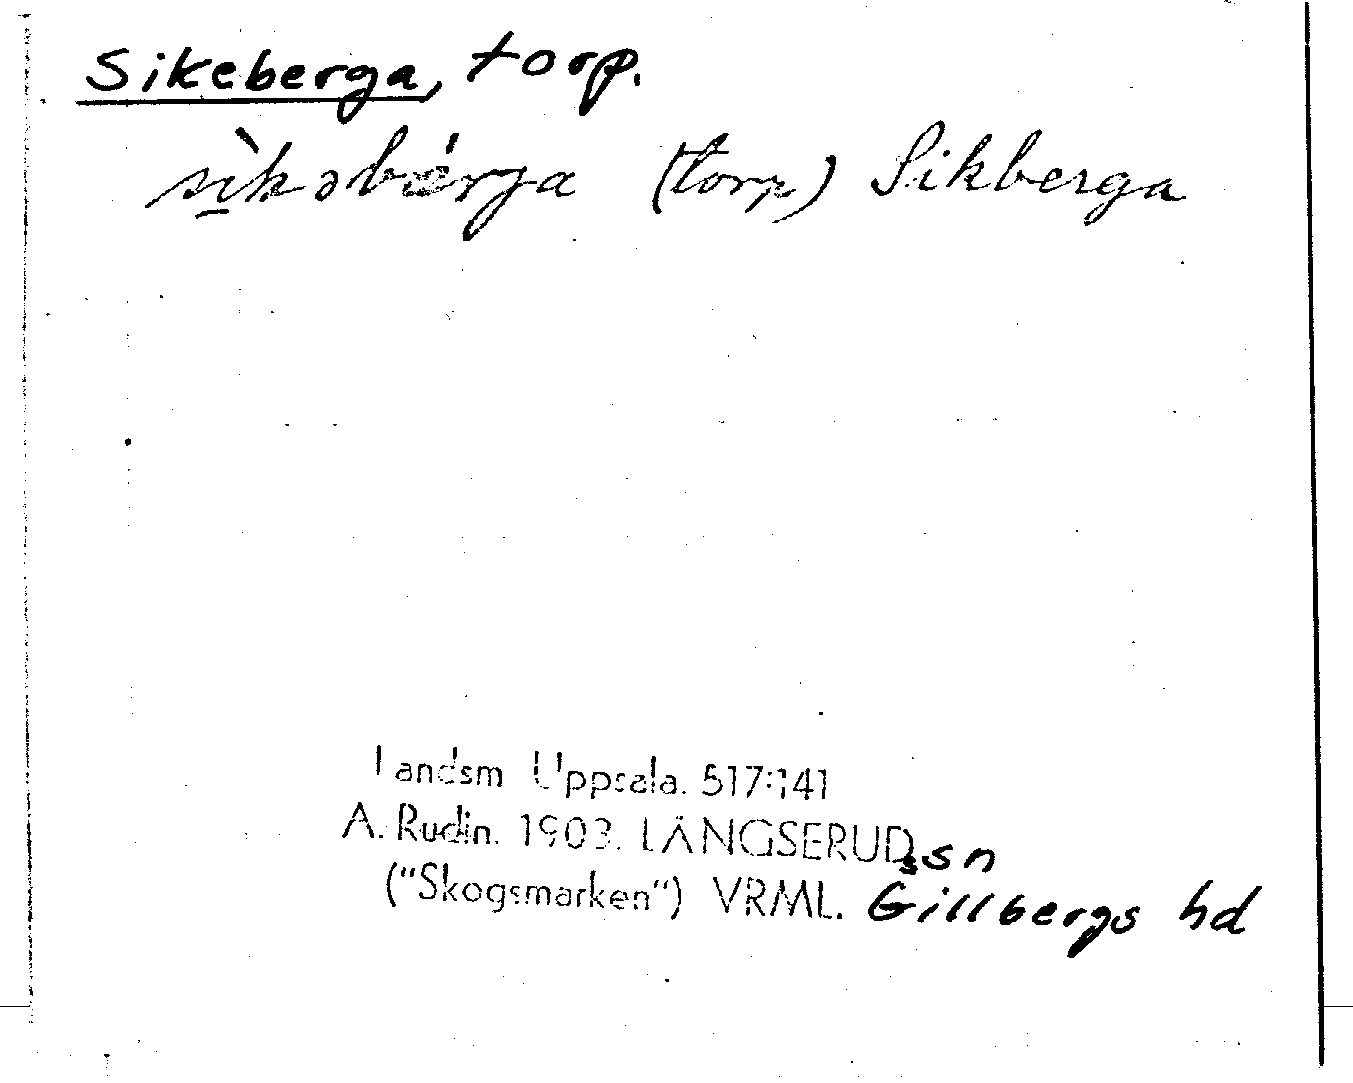 Sikeberga, torp.
sìkəbérga (torp) Sikberga
Landsm Uppsala. 517:141
A. Rudin. 1903. LÅNGSERUDs sn
("Skogsmarken") VRML. Gillbergs hd